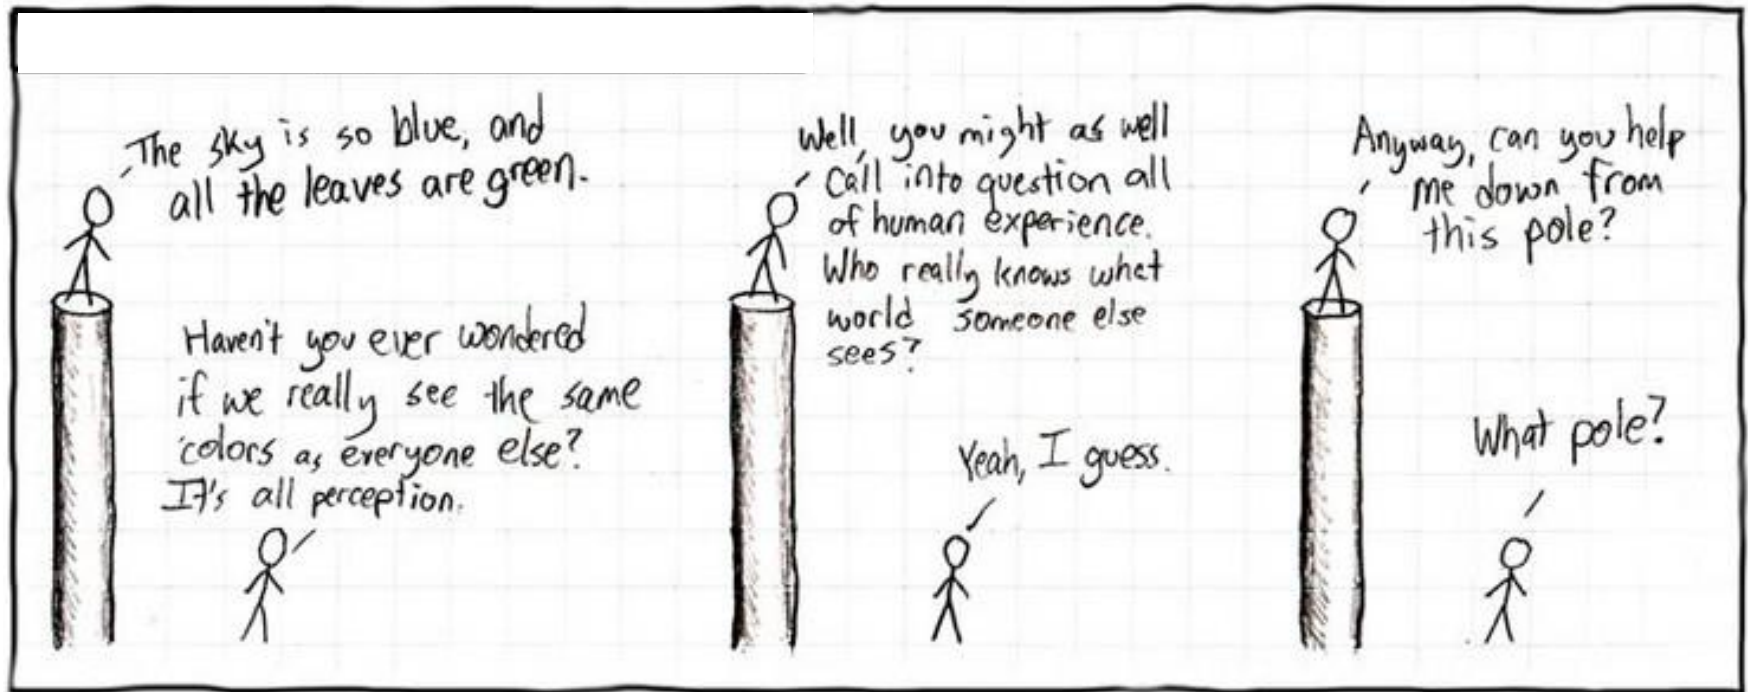 The sky is so blue, and
all the leaves are green.
Haven't you ever wondered
if we really see the same
colors as everyone else?
It's all perception.
Well, you might as well
call into question all
of human experience.
Who really knows what
world someone else
sees?
Yeah, I guess.
Anyway, can you help
me down from
this pole?
What pole?